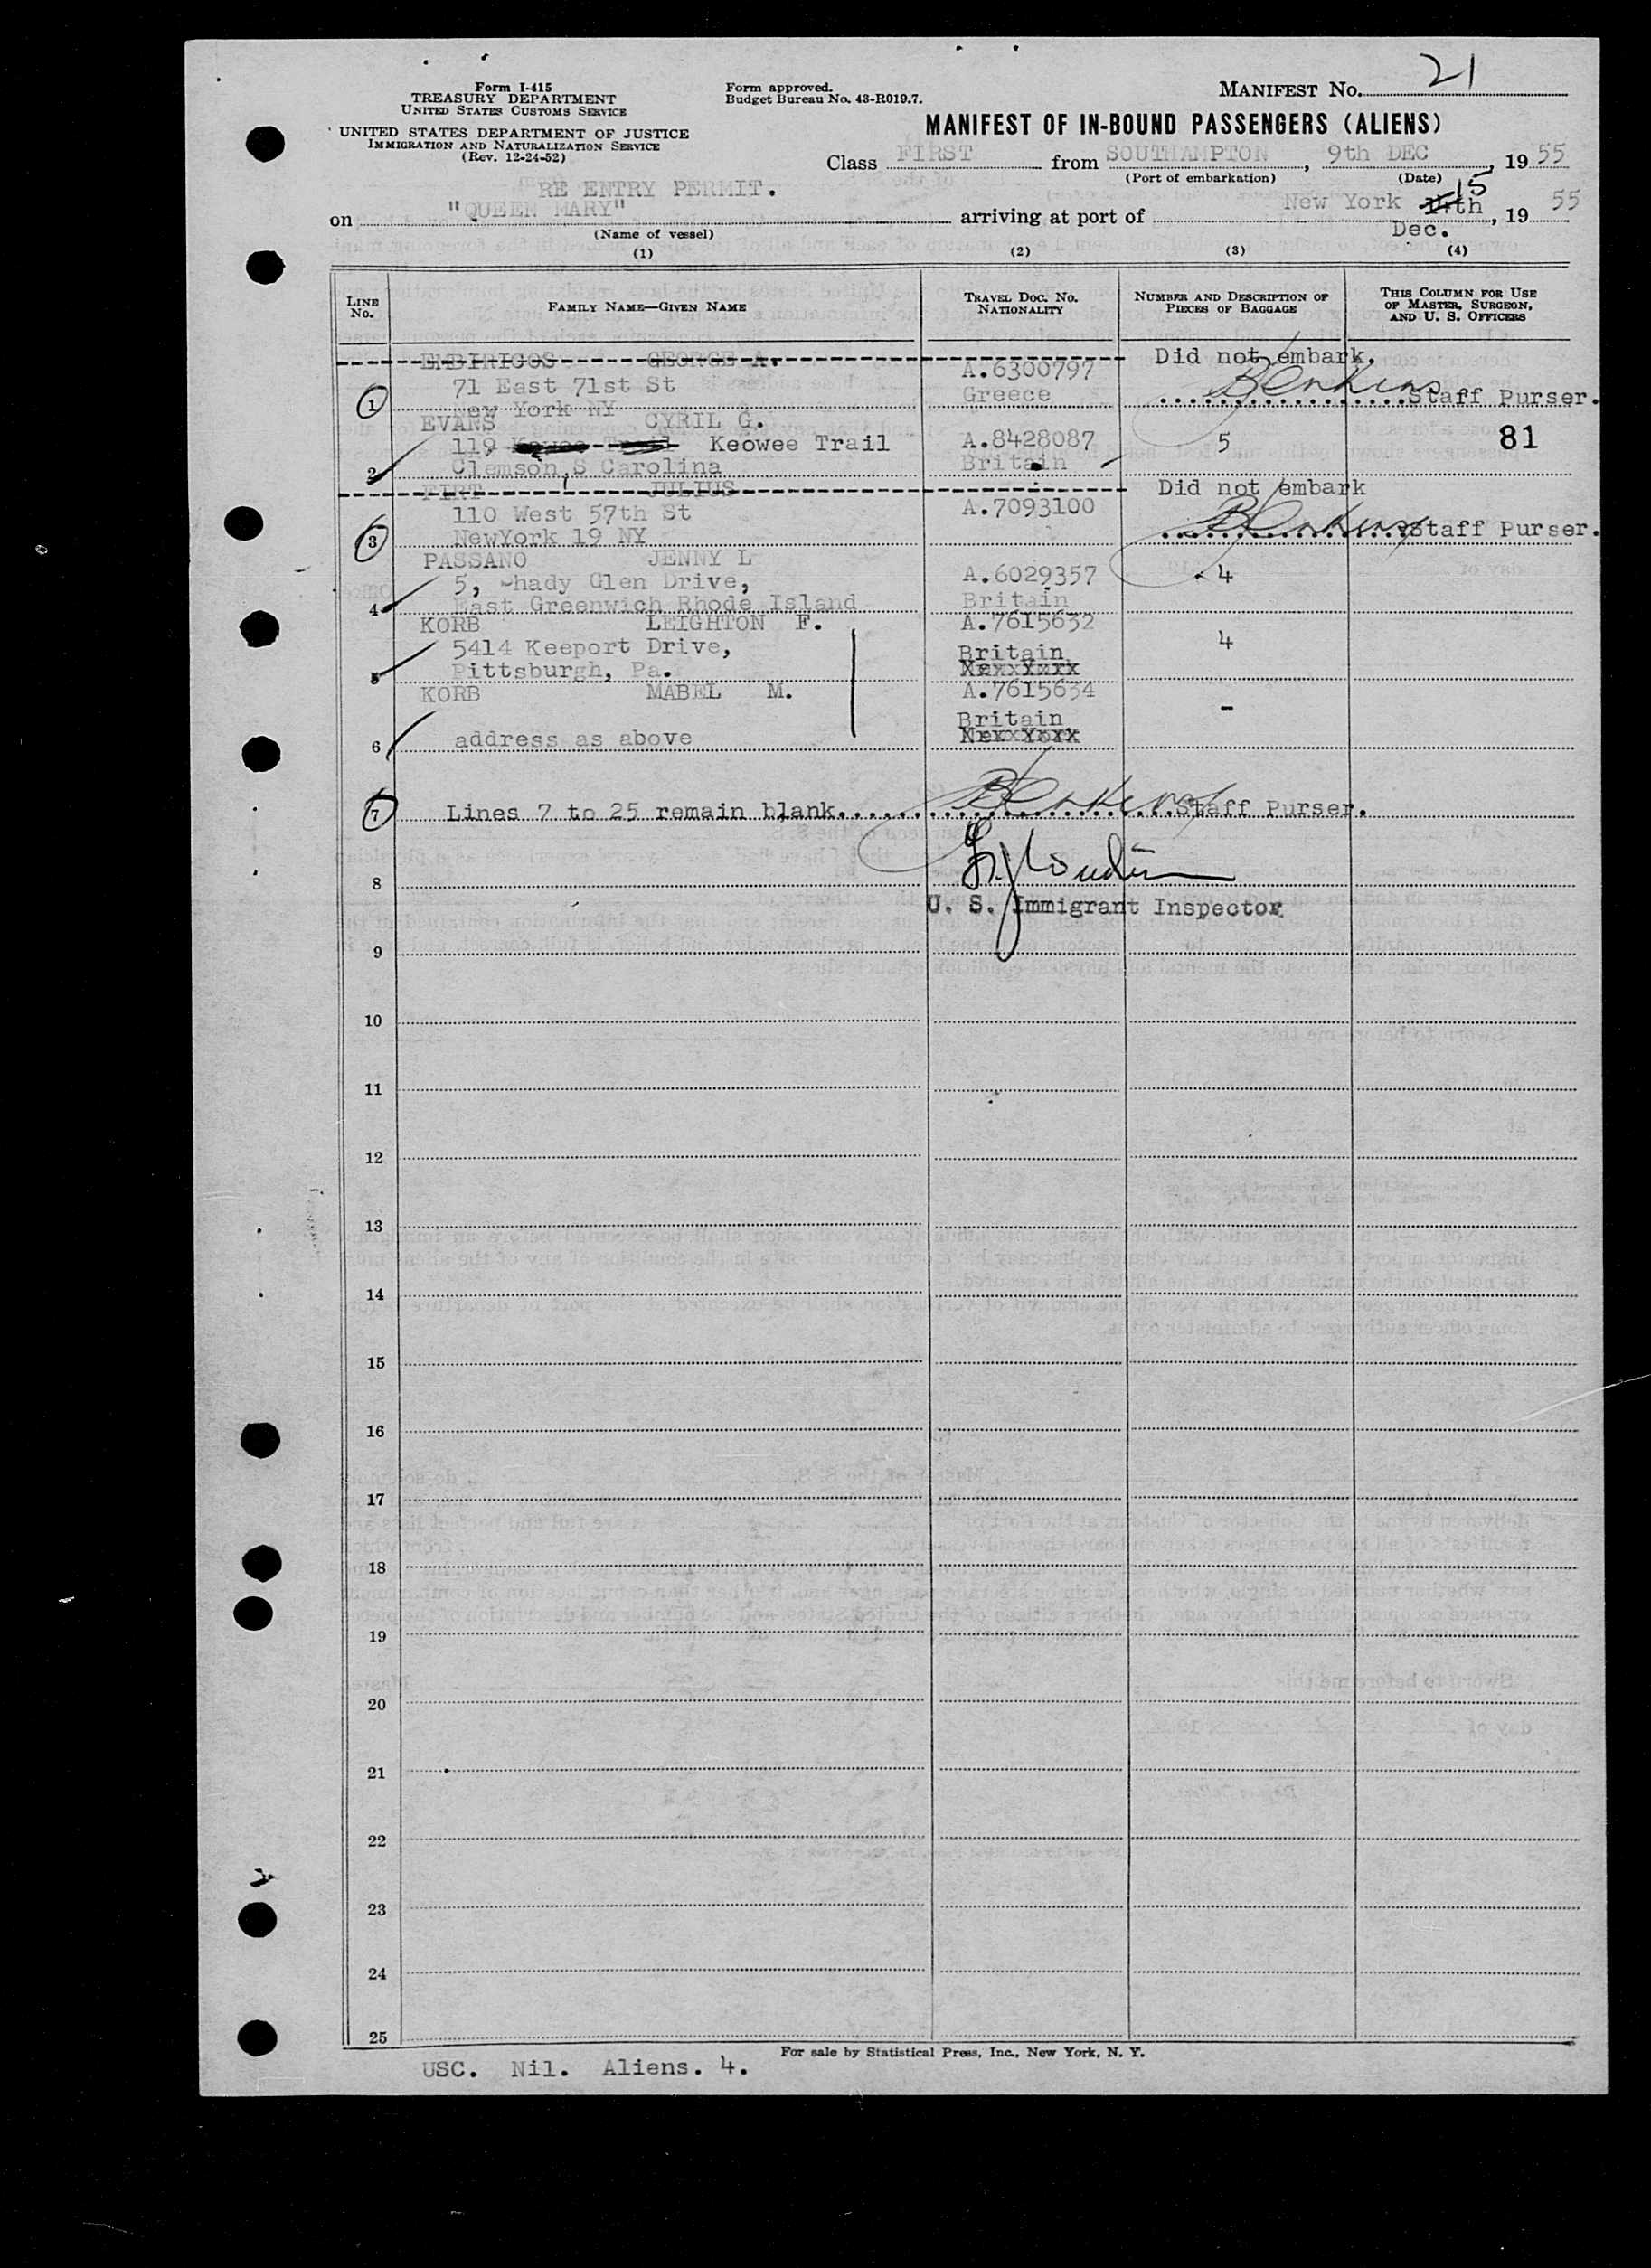 Form I-415
TREASURY DEPARTMENT
UNITED STATES CUSTOMS SERVICE
UNITED STATES DEPARTMENT OF JUSTICE
IMMIGRATION AND NATURALIZATION SERVICE
(Rev. 12-24-52)
Form approved.
Budget Bureau No. 43-R019.7.
MANIFEST NO. 21
MANIFEST OF IN-BOUND PASSENGERS (ALIENS)
Class FIRST from SOUTHAMPTON, 9th DEC, 19 55
(Port of embarkation) (Date)
RE ENTRY PERMIT.
on "QUEEN MARY" arriving at port of New York 14th 15 Dec., 19 55
(Name of vessel)
(1) (2) (3) (4)
LINE NO. FAMILY NAME—GIVEN NAME TRAVEL DOC. NO. NATIONALITY NUMBER AND DESCRIPTION OF PIECES OF BAGGAGE THIS COLUMN FOR USE OF MASTER, SURGEON, AND U. S. OFFICERS
EMBIRICOS GEORGE A. Did not embark.
71 East 71st St A.6300797
1 New York NY Greece Staff Purser.
EVANS CYRIL G.
119 Keowee Trail A.8428087 5 81
2 Clemson, S Carolina Britain
FIRT JULIUS Did not embark
110 West 57th St A.7093100
3 NewYork 19 NY Staff Purser.
PASSANO JENNY L
5, Shady Glen Drive, A.6029357 4
4 East Greenwich Rhode Island Britain
KORB LEIGHTON F. A.7615632
5414 Keeport Drive, Britain 4
5 Pittsburgh, Pa.
KORB MABEL M. A.7615634
Britain -
6 address as above
7 Lines 7 to 25 remain blank. Staff Purser.
8
U. S. Immigrant Inspector
9
10
11
12
13
14
15
16
17
18
19
20
21
22
23
24
25
For sale by Statistical Press, Inc., New York, N. Y.
USC. Nil. Aliens. 4.